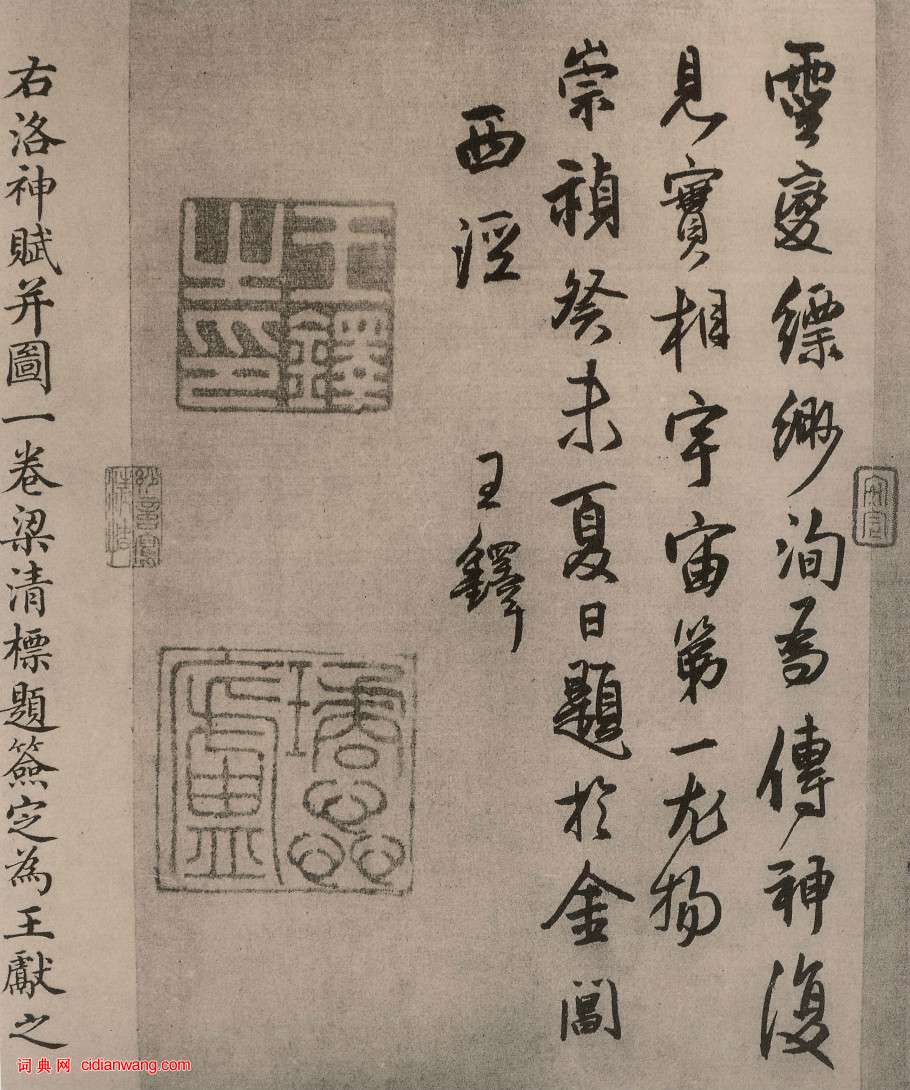 靈變縹緲洵為傳神復
見寶相宇宙第一尤物
崇禎癸未夏日題於金閶
西涇
王鐸
王鐸之印
右洛神賦并圖一卷梁清標題簽定為王獻之
词典网 cidianwang.com